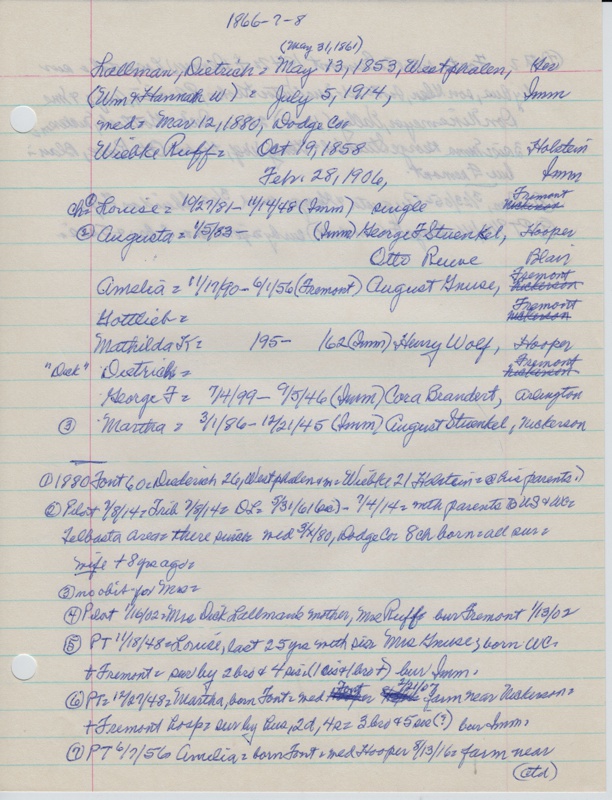 1866-7-8
(May 31, 1861)
Lallman, Dietrich = May 13, 1853, Westphalen, Hoo
(Wm & Hannah W) July 5, 1914, Imm
med = Mar 12, 1880, Dodge Co=
Wiebke Ruff = Oct 19, 1858 Holstein
Feb. 28, 1906, Imm
ch = ① Louise = 10/27/81 - 11/14/48 (Imm) single Fremont
② Augusta = 1/5/83 - (Imm) George F Stuenkel, Hooper
Otto Ruwe Blair
Amelia = 11/17/90 - 6/1/56 (Fremont) August Gnuse, Fremont Nickerson
Gottlieb = Fremont Nickerson
Mathilda K = 195- 162 (Imm) Henry Wolf, Hooper
"Dick" Dietrich = Fremont Nickerson
George F = 7/4/99 - 9/5/46 (Imm) Cora Brandert, Arlington
③ Martha = 3/1/86 - 12/21/45 (Imm) August Stuenkel, Nickerson
① 1880 Font 60 = Diederich 26, Westphalen + m = Wiebke 21 Holstein = @ his parents =)
② Pilot 7/8/14 = Trib 7/8/14 = OL = 5/31/61 (sic) - 7/4/14 = with parents to US & WC =
Telbasta area = there since med 3/12/80, Dodge Co = 8 ch born = all sur =
wife + 8 yrs ago =
③ no obit for Mrs =
④ Pilot 1/16/02 = Mrs Dick Lallman's mother, Mrs Ruff bur Fremont 1/13/02
⑤ PT 11/18/48 = Louise, last 25 yrs with sis Mrs Gnuse; born WC =
+ Fremont = sur by 2 bro & 4 sis (1 sis + 1 bro +) bur Imm.
⑥ PT = 12/27/48 = Martha, born Font = med 2/21/07 farm near Nickerson =
+ Fremont hosp = sur by hus, 2d, 4s = 3 bro & 5 sis (?) bur Imm.
⑦ PT 6/7/56 Amelia = born Font = med Hooper 8/13/16 = farm near
(ctd)